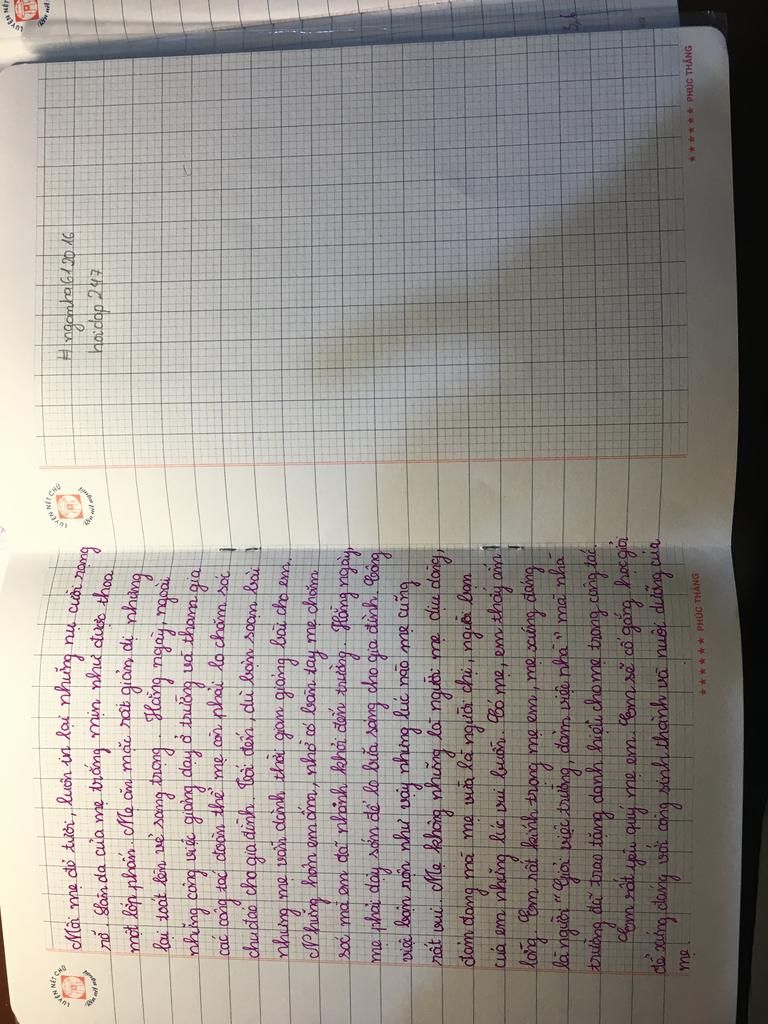 Môi mẹ đỏ tươi, luôn in lại những nụ cười rạng
rỡ. Làn da của mẹ trắng mịn như được thoa
một lớp phấn. Mẹ ăn mặc rất giản dị nhưng
lại toát lên vẻ sang trọng. Hằng ngày, ngoài
những công việc giảng dạy ở trường và tham gia
các công tác đoàn thể mẹ còn phải lo chăm sóc
chu đáo cho gia đình. Tối đến, dù bận soạn bài
nhưng mẹ vẫn dành thời gian giảng bài cho em.
Những hôm em ốm, nhờ có bàn tay mẹ chăm
sóc mà em đã nhanh khỏi đến trường. Hằng ngày,
mẹ phải dậy sớm để lo bữa sáng cho gia đình. Công
việc bận rộn như vậy nhưng lúc nào mẹ cũng
rất vui. Mẹ không những là người mẹ dịu dàng,
đảm đang mà mẹ vừa là người chị, người bạn
của em những lúc vui buồn. Có mẹ, em thấy ấm
lòng. Em rất kính trọng mẹ em, mẹ xứng đáng
là người "Giỏi việc trường, đảm việc nhà" mà nhà
trường đã trao tặng danh hiệu cho mẹ trong công tác.
Em rất yêu quý mẹ em. Em sẽ cố gắng học giỏi
để xứng đáng với công sinh thành và nuôi dưỡng của
mẹ.
#ngamha612016
hoidap247
LUYỆN NÉT CHỮ
Rèn nết người
LUYỆN NÉT CHỮ
Rèn nết người
★★★★★★ PHÚC THẮNG
★★★★★★ PHÚC THẮNG